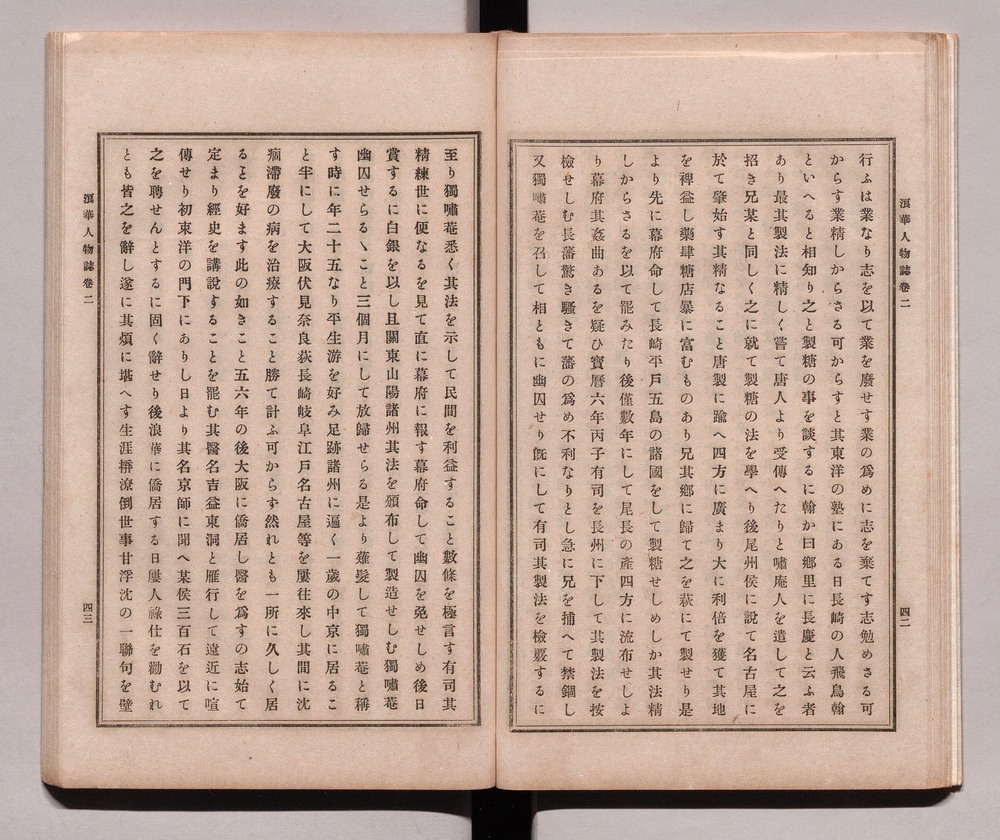 浪華人物誌卷二
四二
行ふは業なり志を以て業を廢せす業の爲めに志を棄てす志勉めさる可
からす業精しからさる可からすと其東洋の塾にある日長崎の人飛鳥翰
といへると相知り之と製糖の事を談するに翰か曰鄕里に長慶と云ふ者
あり最其製法に精しく嘗て唐人より受傳へたりと嘯庵人を遣して之を
招き兄某と同しく之に就て製糖の法を學へり後尾州侯に説て名古屋に
於て肇始す其精なること唐製に踰へ四方に廣まり大に利倍を獲て其地
を裨益し藥肆糖店暴に富むものあり兄其鄕に歸て之を萩にて製せり是
より先に幕府命して長崎平戸五島の諸國をして製糖せしめしか其法精
しからさるを以て罷みたり後僅數年にして尾長の産四方に流布せしよ
り幕府其姦曲あるを疑ひ寶曆六年丙子有司を長州に下して其製法を按
檢せしむ長藩驚き騷きて藩の爲め不利なりとし急に兄を捕へて禁錮し
又獨嘯菴を召して相ともに幽囚せり既にして有司其製法を檢覈するに
至り獨嘯菴悉く其法を示して民間を利益すること數條を極言す有司其
精練世に便なるを見て直に幕府に報す幕府命して幽囚を免せしめ後日
賞するに白銀を以し且關東山陽諸州其法を頒布して製造せしむ獨嘯菴
幽囚せらるゝこと三個月にして放歸せらる是より薙髮して獨嘯菴と稱
す時に年二十五なり平生游を好み足跡諸州に遍く一歳の中京に居るこ
と半にして大阪伏見奈良萩長崎岐阜江戸名古屋等を屢往來し其間に沈
痼滯廢の病を治療すること勝て計ふ可からす然れとも一所に久しく居
ることを好ます此の如きこと五六年の後大阪に僑居し醫を爲すの志始て
定まり經史を講説することを罷む其醫名吉益東洞と雁行して遠近に喧
傳せり初東洋の門下にありし日より其名京師に聞へ某侯三百石を以て
之を聘せんとするに固く辭せり後浪華に僑居する日屢人祿仕を勸むれ
とも皆之を辭し遂に其煩に堪へす生涯摒潦倒世事甘浮沈の一聯句を壁
浪華人物誌卷二
四三